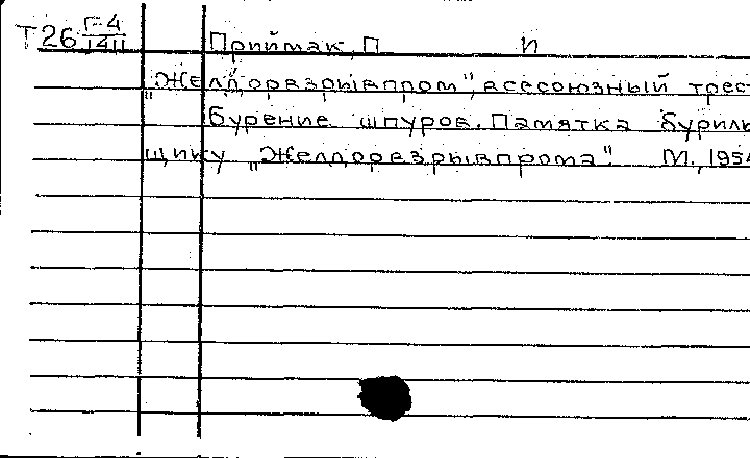 Т26 Г-4/1411 Приймак, П И
"Желдорвзрывпром", всесоюзный трест
Бурение шпуров. Памятка буриль
щику "Желдорвзрывпрома". М., 1954